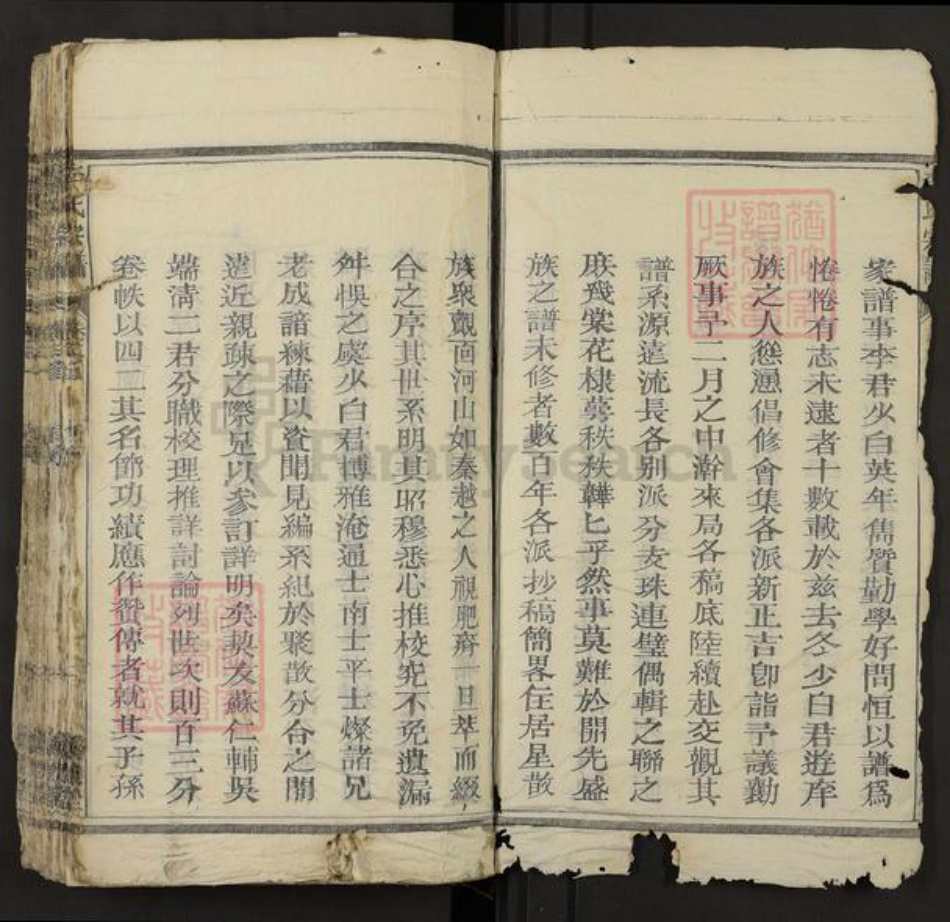 家譜事李君少白英年雋質勤學好問恒以譜爲
惓惓有志未逮者十數載於兹去冬少白君遊庠
族之人慫湧倡修會集各派新正吉卽詣予議勷
厥事予二月之中澣來局各稿底陸續赴交觀其
譜系源遠流長各别派分支珠連璧偶輯之聯之
庶幾棠花棣萼秩秩韡匕乎然事莫難於開先盛
族之譜未修者數百年各派抄稿簡畧住居星散
族衆覿面河山如秦越之人視肥瘠一旦萃而綴
合之序其世系明其昭穆悉心推校究不免遺漏
舛悞之虞少白君博雅淹通士南士平士燦諸兄
老成諳練藉以資聞見編系紀於聚散分合之間
遠近親疎之際足以參訂詳明矣契友蘇仁輔吳
端清二君分職校理推詳討論列世次則百三分
卷帙以四二其名節功績應作贊傳者就其子孫
FamilySearch